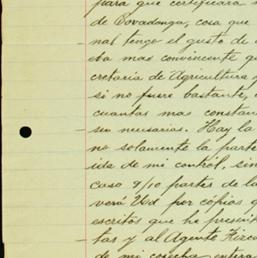 para que certificara
de Covadonga, cosa que
nal tengo el gusto de
mas convincente
cretaria de Agricultura
si no fuere bastante,
cuantas mas
sen necesarias. Hay la
no solamente la parte
de mi control, sin
caso 9/10 partes de la
verá Ud por cópias
escritos que he
tas y al Agente
de mi cosecha entera